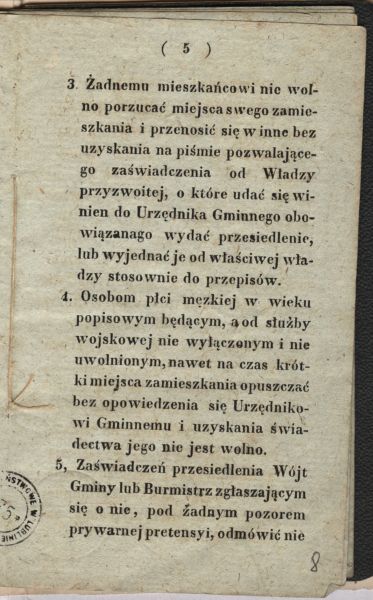 ( 5 )
3. Żadnemu mieszkańcowi nie wol-
no porzucać miejsca swego zamie-
szkania i przenosić się w inne bez
uzyskania na piśmie pozwalające-
go zaświadczenia od Władzy
przyzwoitej, o które udać się wi-
nien do Urzędnika Gminnego obo-
wiązanago wydać przesiedlenie,
lub wyjednać je od właściwej wła-
dzy stosownie do przepisów.
4. Osobom płci męzkiej w wieku
popisowym będącym, a od służby
wojskowej nie wyłączonym i nie
uwolnionym, nawet na czas krót-
ki miejsca zamieszkania opuszczać
bez opowiedzenia się Urzędniko-
wi Gminnemu i uzyskania świa-
dectwa jego nie jest wolno.
5, Zaświadczeń przesiedlenia Wójt
Gminy lub Burmistrz zgłaszającym
się o nie, pod żadnym pozorem
prywarnej pretensyi, odmówić nie
8
W LUBLINIE